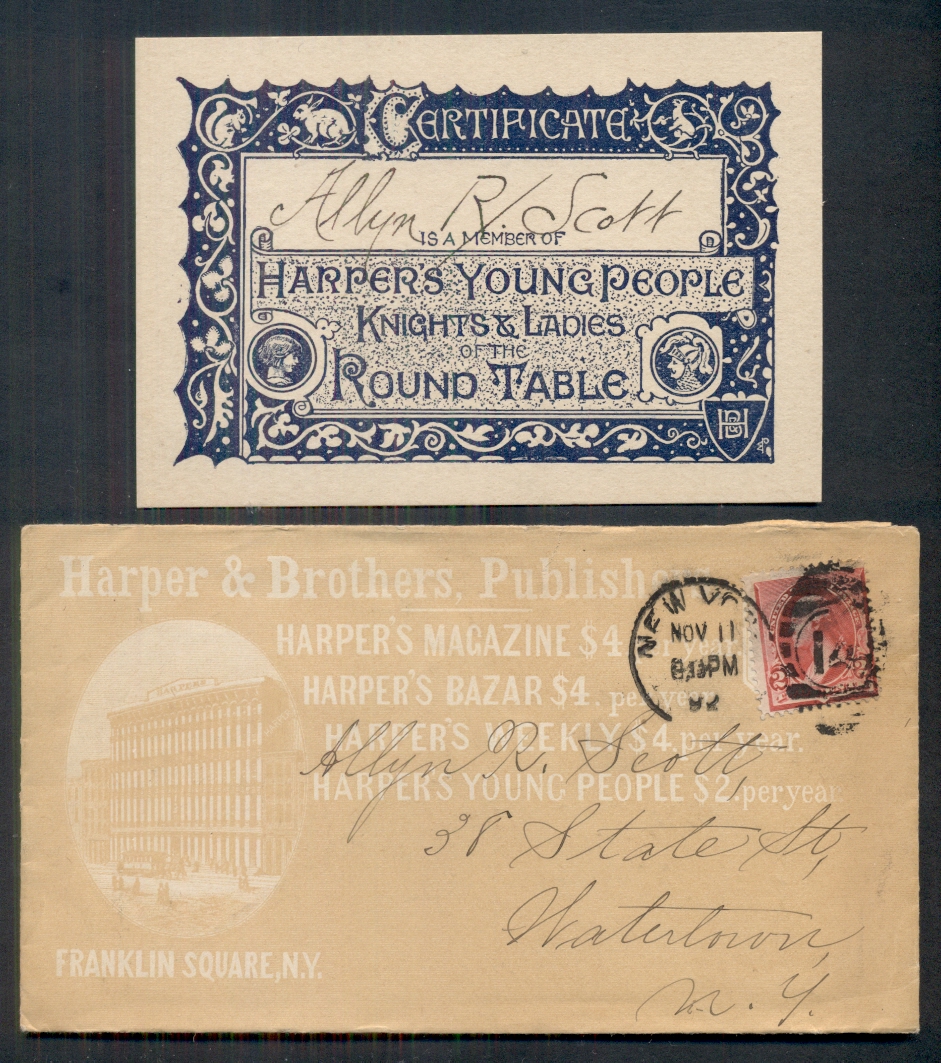 CERTIFICATE
Allyn R. Scott
IS A MEMBER OF
HARPER'S YOUNG PEOPLE
KNIGHTS & LADIES
OF THE
ROUND TABLE
H&B
Harper & Brothers, Publishers
HARPER'S MAGAZINE $4 per year
HARPER'S BAZAR $4. per year
HARPER'S WEEKLY $4. per year.
HARPER'S YOUNG PEOPLE $2. per year
FRANKLIN SQUARE, N.Y.
NEW YO
NOV 11
PM
92
14
2
Allyn R. Scott,
38 State St,
Watertown,
N. Y.